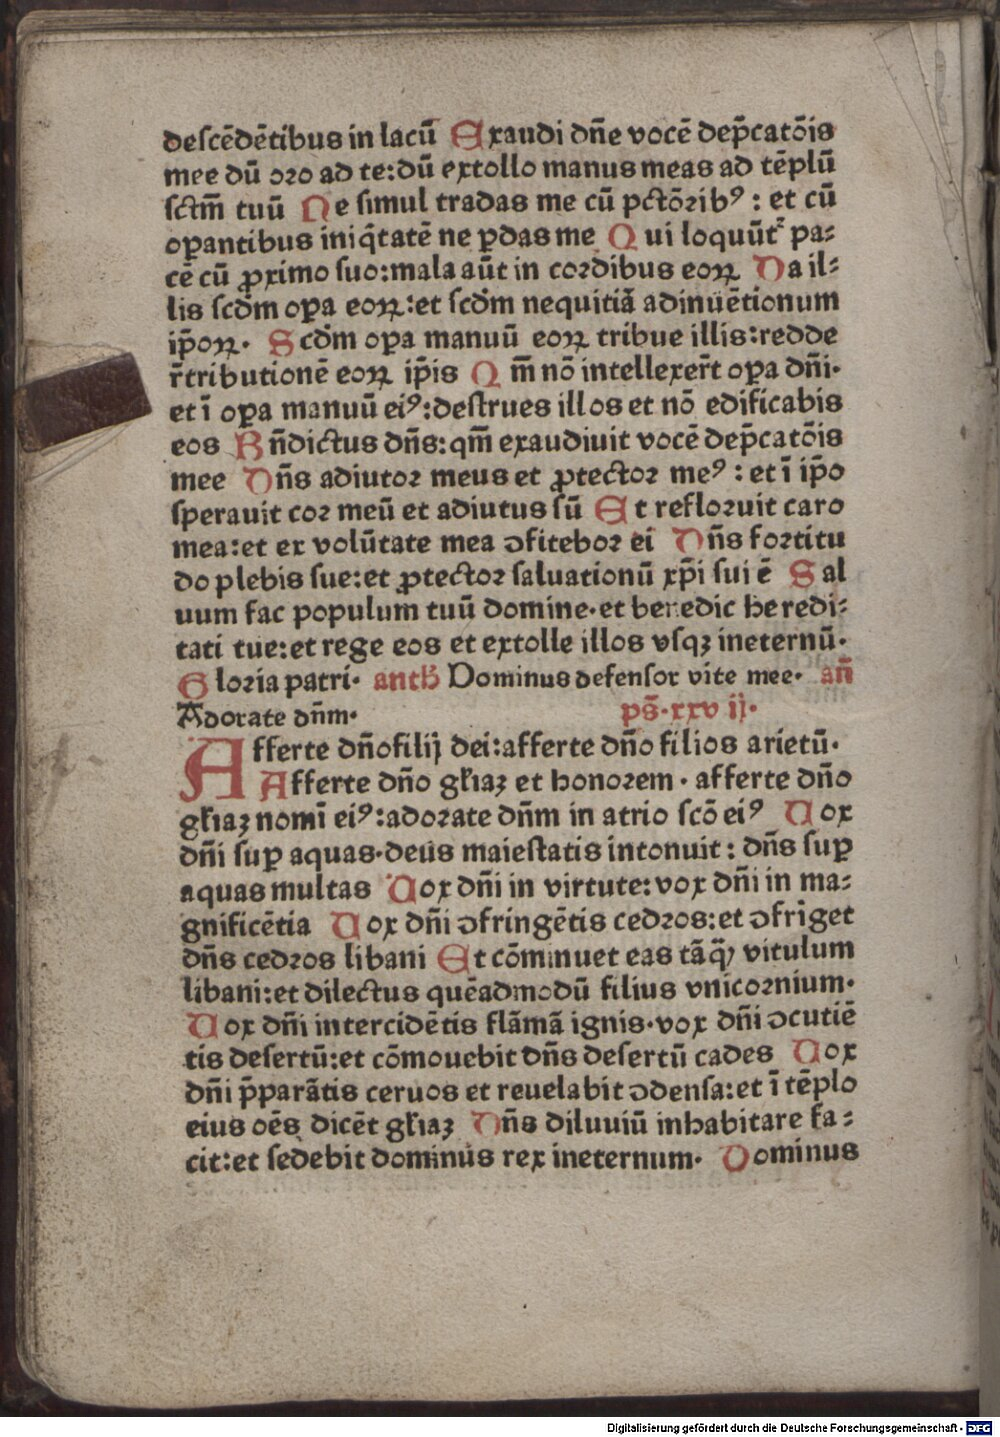 deſcēdētibus in lacū Exaudi dn̄e vocē dep̄catōis
mee dū oꝛo ad te:dū extollo manus meas ad tēplū
ſctm̄ tuū Ne ſimul tradas me cū pctōꝛibꝰ : et cū
oꝑantibus iniq̄tatē ne ꝑdas me Qui loquūtᷣ pa⸗
cē cū ꝓximo ſuo:mala aūt in coꝛdibus eoꝝ Da il⸗
lis ſcd̄m oꝑa eoꝝ:et ſcd̄m nequitiā adinuētionum
ip̄oꝝ. Scd̄m oꝑa manuū eoꝝ tribue illis:redde
r̄tributionē eoꝝ ip̄is Qm̄ nō intellexer̄t oꝑa dn̄i.
et ī oꝑa manuū eiꝰ:deſtrues illos et nō edificabis
eos Bn̄dictus dn̄s:qm̄ exaudiuit vocē dep̄catōis
mee Dn̄s adiutoꝛ meus et ꝓtectoꝛ meꝰ : et ī ip̄o
ſperauit coꝛ meū et adiutus ſū Et refloꝛuit caro
mea:et ex volūtate mea ↄfiteboꝛ ei Dn̄s foꝛtitu
do plebis ſue:et ꝓtectoꝛ ſaluationū xp̄i ſui ē Sal
uum fac populum tuū domine.et benedic heredi⸗
tati tue:et rege eos et extolle illos vſqꝫ ineternū.
Gloꝛia patri. anth̄ Dominus defenſor vite mee. an̄
Adorate dn̄m. ps̄.xxv ij.
Afferte dn̄o filij dei:afferte dn̄o filios arietū.
Afferte dn̄o gl̄iaꝫ et honoꝛem . afferte dn̄o
gl̄iaꝫ nomī eiꝰ:adoꝛate dn̄m in atrio ſcō eiꝰ Uox
dn̄i ſuꝑ aquas.deus maieſtatis intonuit: dn̄s ſuꝑ
aquas multas Uox dn̄i in virtute:vox dn̄i in ma⸗
gnificētia Uox dn̄i ↄfringētis cedꝛos:et ↄfrīget
dn̄s cedꝛos libani Et cōminuet eas tāq̄ꝫ vitulum
libani:et dilectus quēadmodū filius vnicoꝛnium.
Uox dn̄i intercidētis flāmā ignis.vox dn̄i ↄcutiē
tis deſertū:et cōmouebit dn̄s deſertū cades Uox
dn̄i p̄parātis ceruos et reuelabit ↄdenſa:et ī tēplo
eius oēs dicēt gl̄iaꝫ Dn̄s diluuiū inhabitare fa⸗
cit:et ſedebit dominus rex ineternum. Dominus
Digitalisierung gefördert durch die Deutsche Forschungsgemeinschaft - DFG